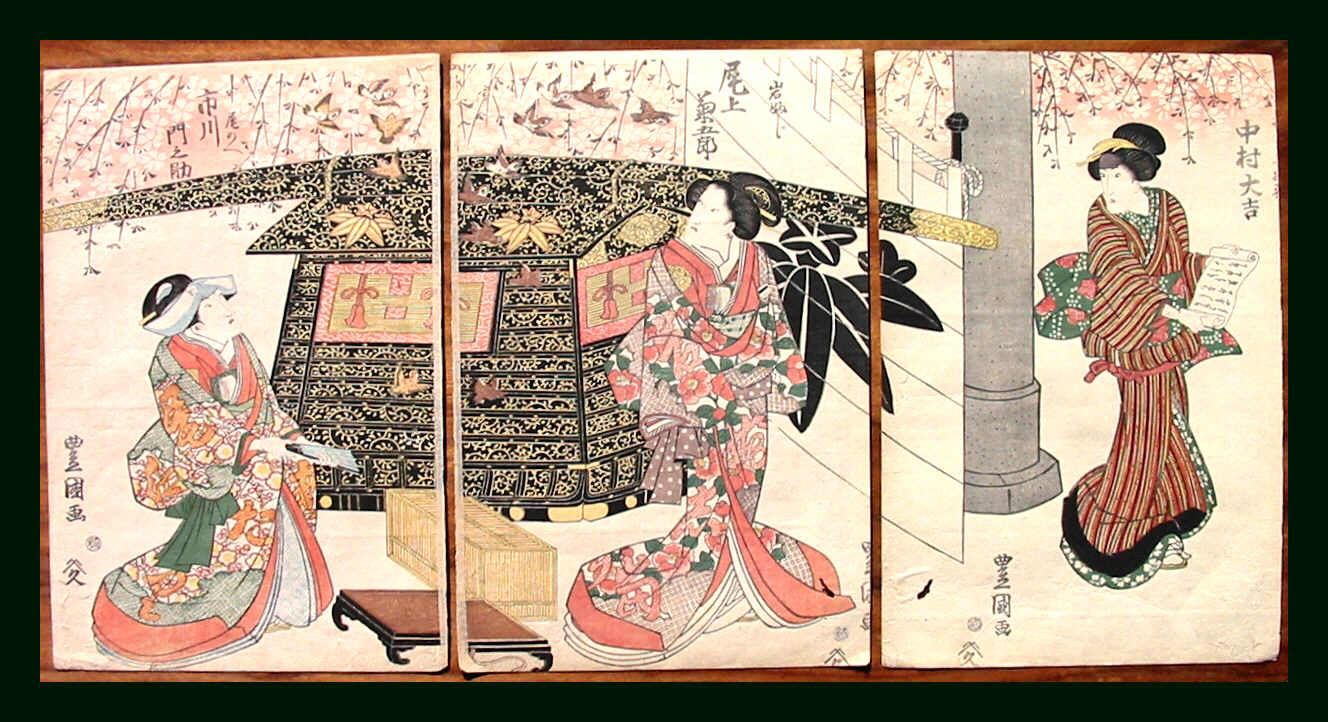 中村大吉
豊國画
岩ふじ
尾上
菊五郎
豊國画
尾のへ
市川
門之助
豊國画
久